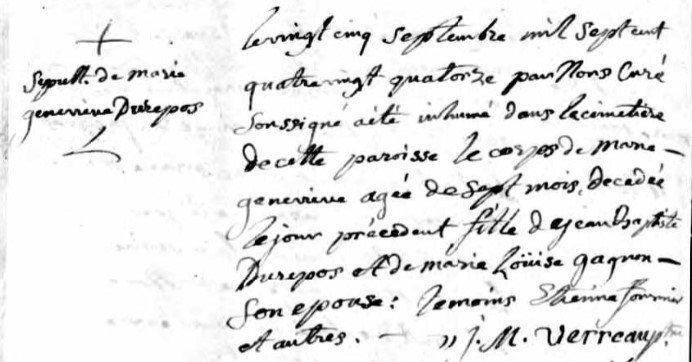 Sepult. de marie
genevieve Durepos
le vingt cinq Septembre mil Septcent
quatrevingt quatorze par Nous Curé
Soussigné a été inhumé dans le cimetière
de cette paroisse le corps de Marie -
genevieve agée de Sept mois, decedée
le jour précedent fille de jean Baptiste
Durepos et de marie Loüise gagnon -
Son epouse: temoins Etienne fournier
et autres. - " J. M. Verreau ptre